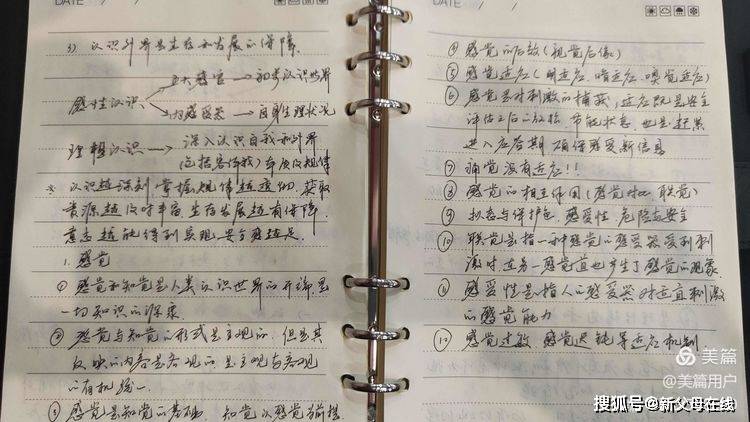 DATE / /
3) 认识外界是生存和发展的保障.
感性认识 五大感官→初步认识世界
内感受器→自身生理状况
理性认识→深入认识自我和外界
(包括客体我)本质及规律
※ 认识越深刻,掌握规律越透彻,获取
资源越及时丰富,生存发展越有保障
意志越能得到实现,安全感越足.
1.感觉
①感觉和知觉是人类认识世界的开端,是
一切知识的源泉
②感觉与知觉的形式是主观的,但是其
反映的内容是客观的,是主观与客观
的有机统一.
③感觉是知觉的基础,知觉以感觉为前提.
DATE / /
④感觉的后效(视觉后像)
⑤感觉适应(明适应、暗适应、嗅觉适应)
⑥感觉是对刺激的捕获,适应既是安全
评估之后的放松、节能状态,也是
进入后期 确保感受新信息
⑦痛觉没有适应!!
⑧感觉的相互作用(感觉对比、联觉)
⑨拟态与保护色,感受性,危险与安全
⑩联觉是指一种感觉的感受器受到刺
激时,在另一感觉道也产生了感觉的现象
⑪感受性是指人的感受器对适宜刺激
的感觉能力
⑫感觉过敏、感觉迟钝等适应机制
美篇
@美篇用户
搜狐号@新父母在线